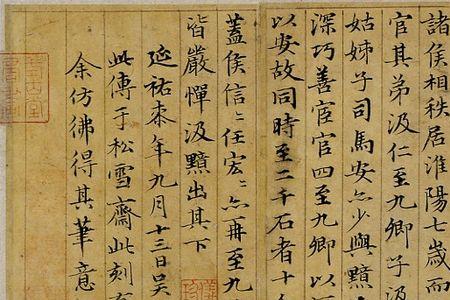 諸侯相秩居淮陽七歲而
官其弟汲仁至九卿子汲
姑姊子司馬安亦少與黯
深巧善宦官四至九卿以
以安故同時至二千石者十
蓋侯信〻任宏〻亦再至九
皆嚴憚汲黯出其下
延祐桼年九月十三日吳
此傳于松雪齋此刻有
余仿佛得其筆意